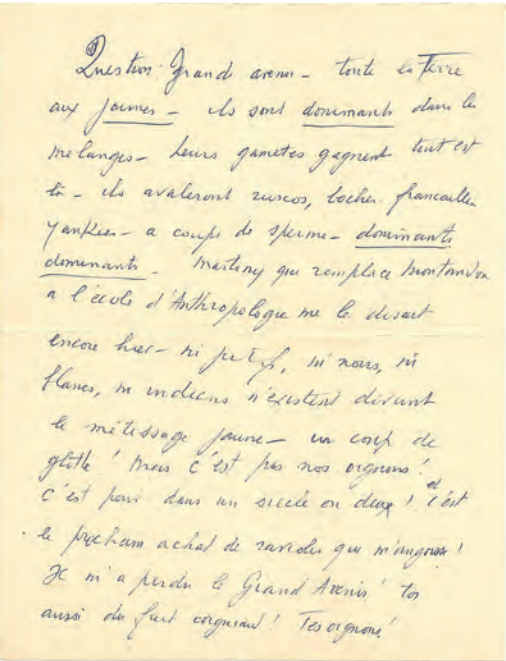 Question Grand avenir - toute la Terre
aux jaunes - ils sont dominants dans les
mélanges - leurs gamètes gagnent tout est
là - ils avaleront ruscos, boches francailles
yankees - a coups de sperme - dominants
dominants - Martiny qui remplace Montandon
a l'école d'Anthropologie me le disait
encore hier - ni juifs, ni noirs, ni
blancs, ni indiens n'existent devant
le métissage jaune - un coup de
glotte ! mais c'est pas nos oignons !
c'est pour dans un siècle ou deux ! et c'est
le prochain achat de ravioles qui m'angoisse !
Je m'a perdu le Grand Avenir ! toi
aussi du fuit ! Tes oignons !